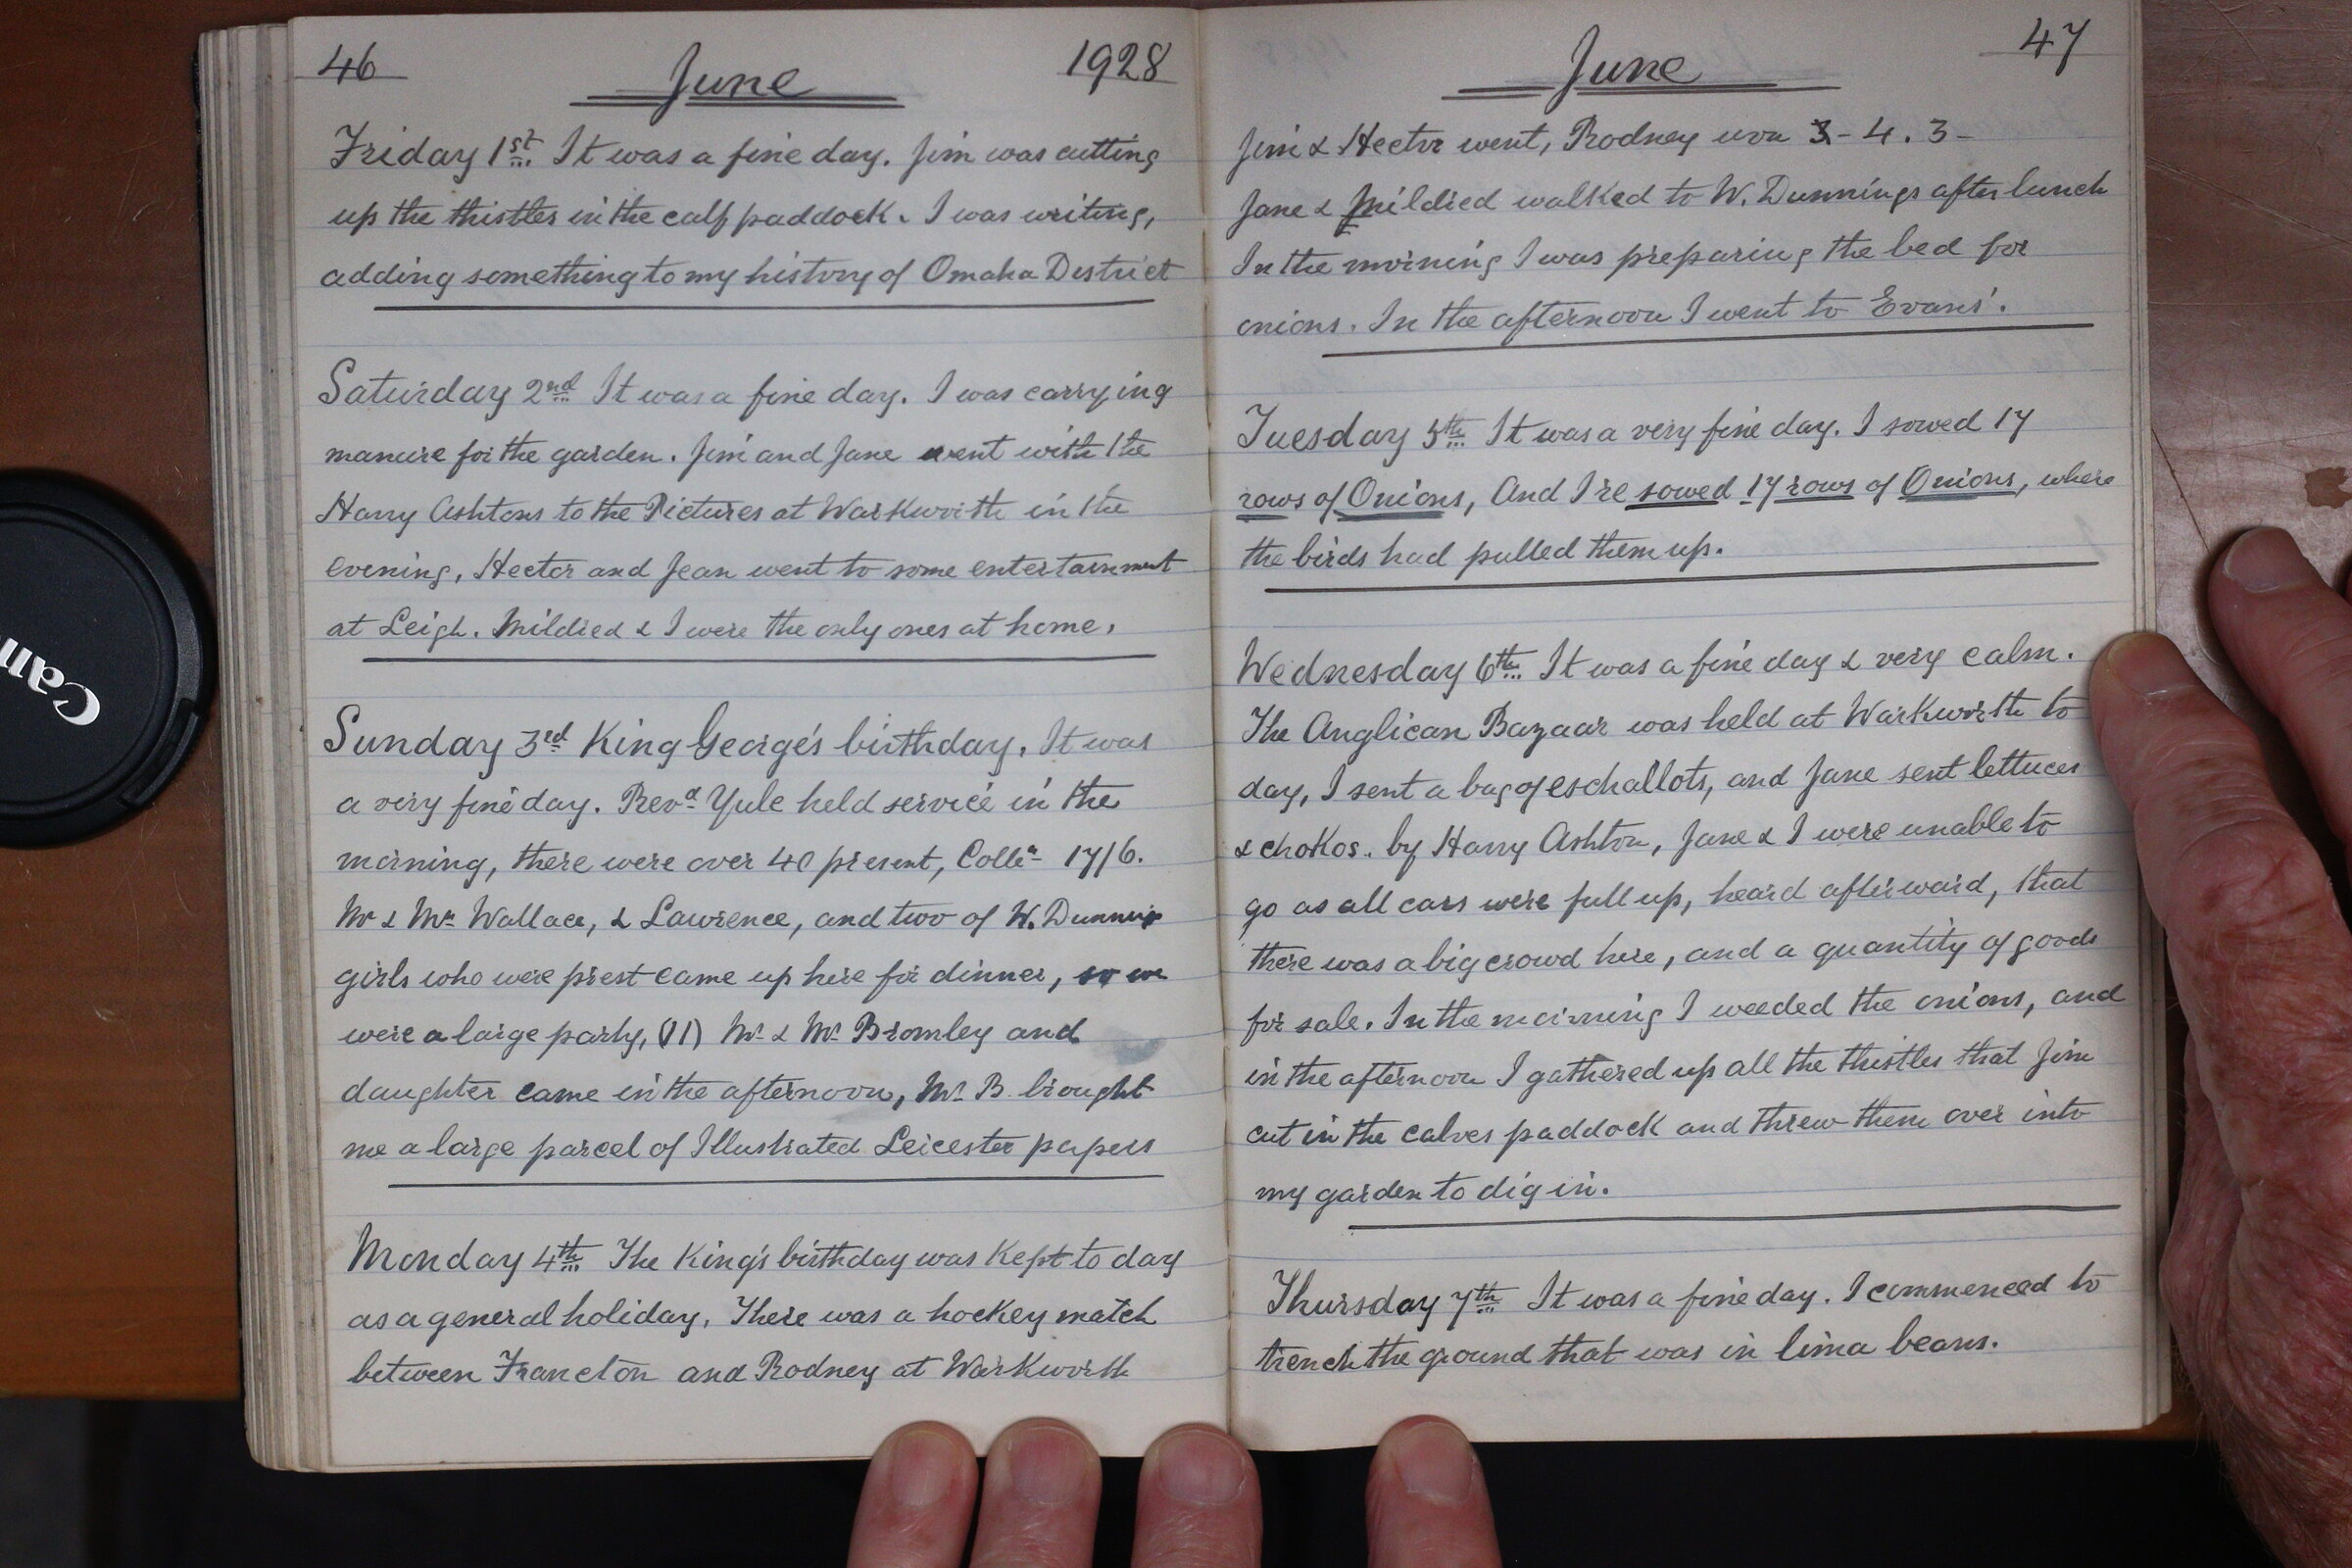 46 June 1928
Friday 1st It was a fine day. Jim was cutting
up the thistles in the calf paddock. I was writing,
adding something to my history of Omaha District
Saturday 2nd It was a fine day. I was carrying
manure for the garden. Jim and Jane went with the
Harry Ashtons to the Pictures at Warkworth in the
evening, Hector and Jean went to some entertainment
at Leigh. Mildred & I were the only ones at home.
Sunday 3rd King George's birthday. It was
a very fine day. Revd Yule held service in the
morning, there were over 40 present, Colln 17/6.
Mr & Mrs Wallace, & Lawrence, and two of W. Dunnings
girls who were prest came up here for dinner, so we
were a large party, (11) Mr & Mrs Bromley and
daughter came in the afternoon, Mr B. brought
me a large parcel of Illustrated Leicester papers
Monday 4th The King's birthday was kept to day
as a general holiday. There was a hockey match
between Francton and Rodney at Warkworth
June 47
Jim & Hector went, Rodney won 4. 3-
Jane & Mildred walked to W. Dunnings after lunch
In the morning I was preparing the bed for
onions. In the afternoon I went to Evans'.
Tuesday 5th It was a very fine day. I sowed 17
rows of Onions, And I re sowed 17 rows of Onions, where
the birds had pulled them up.
Wednesday 6th It was a fine day & very calm.
The Anglican Bazaar was held at Warkworth to
day, I sent a bag of eschallots, and Jane sent lettuces
& chokos. by Harry Ashton, Jane & I were unable to
go as all cars were full up, heard afterward, that
there was a big crowd here, and a quantity of goods
for sale. In the morning I weeded the onions, and
in the afternoon I gathered up all the thistles that Jim
cut in the calves paddock and threw them over into
my garden to dig in.
Thursday 7th It was a fine day. I commenced to
trench the ground that was in lima beans.
Can